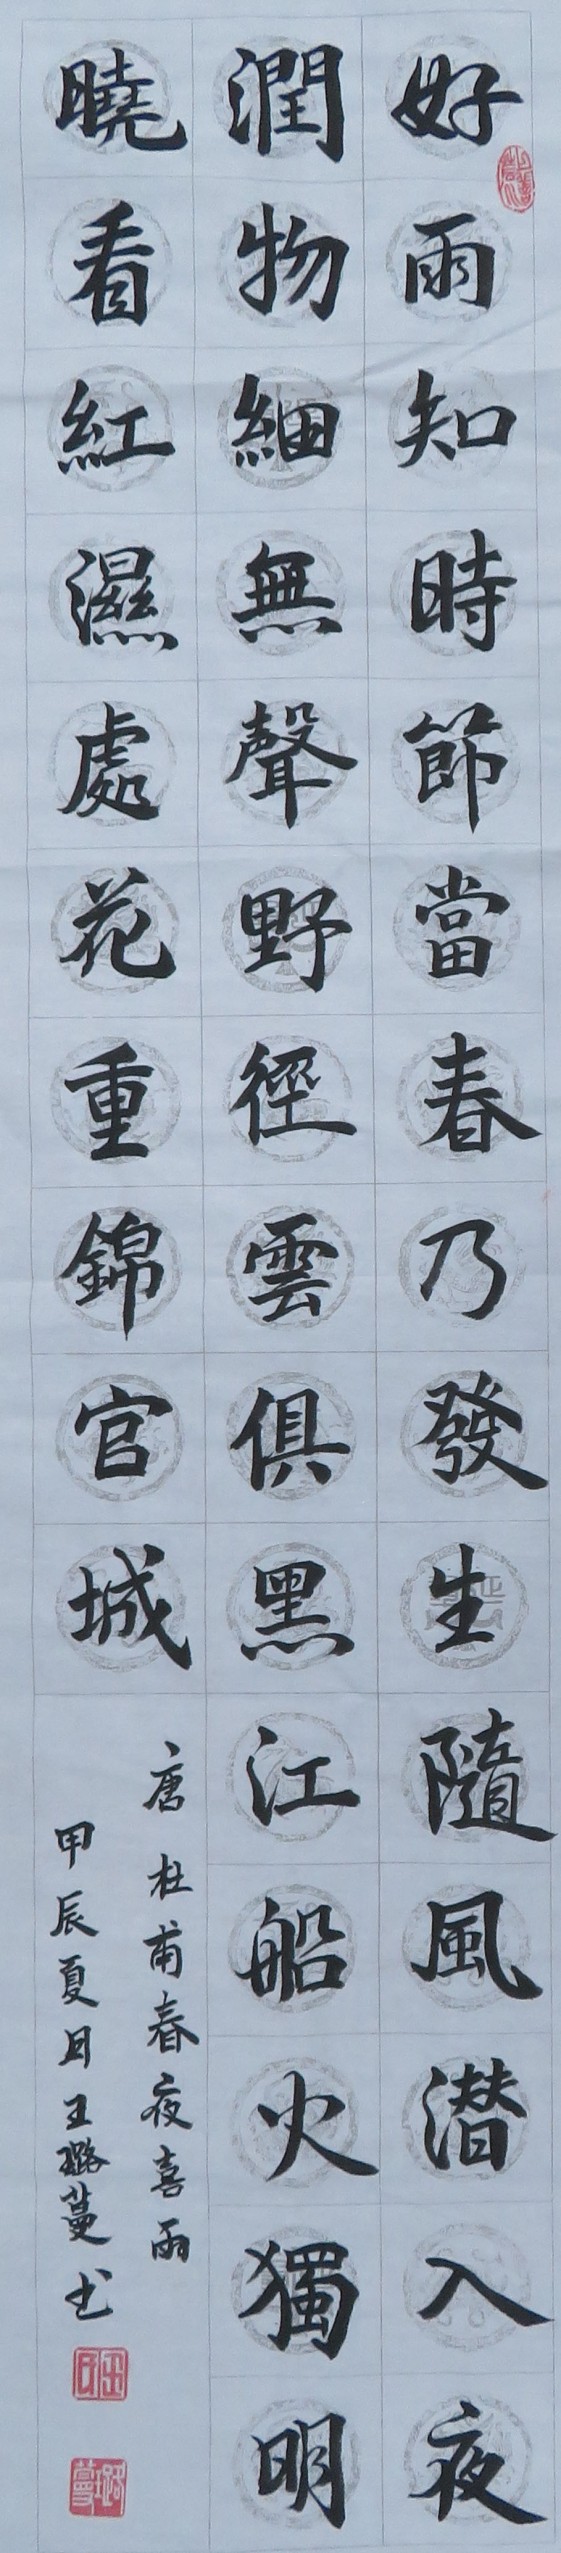 好雨知時節當春乃發生隨風潜入夜
潤物細無聲野徑雲俱黑江船火獨明
曉看紅濕處花重錦官城
唐杜甫春夜喜雨
甲辰夏月王璐蔓书
璐蔓